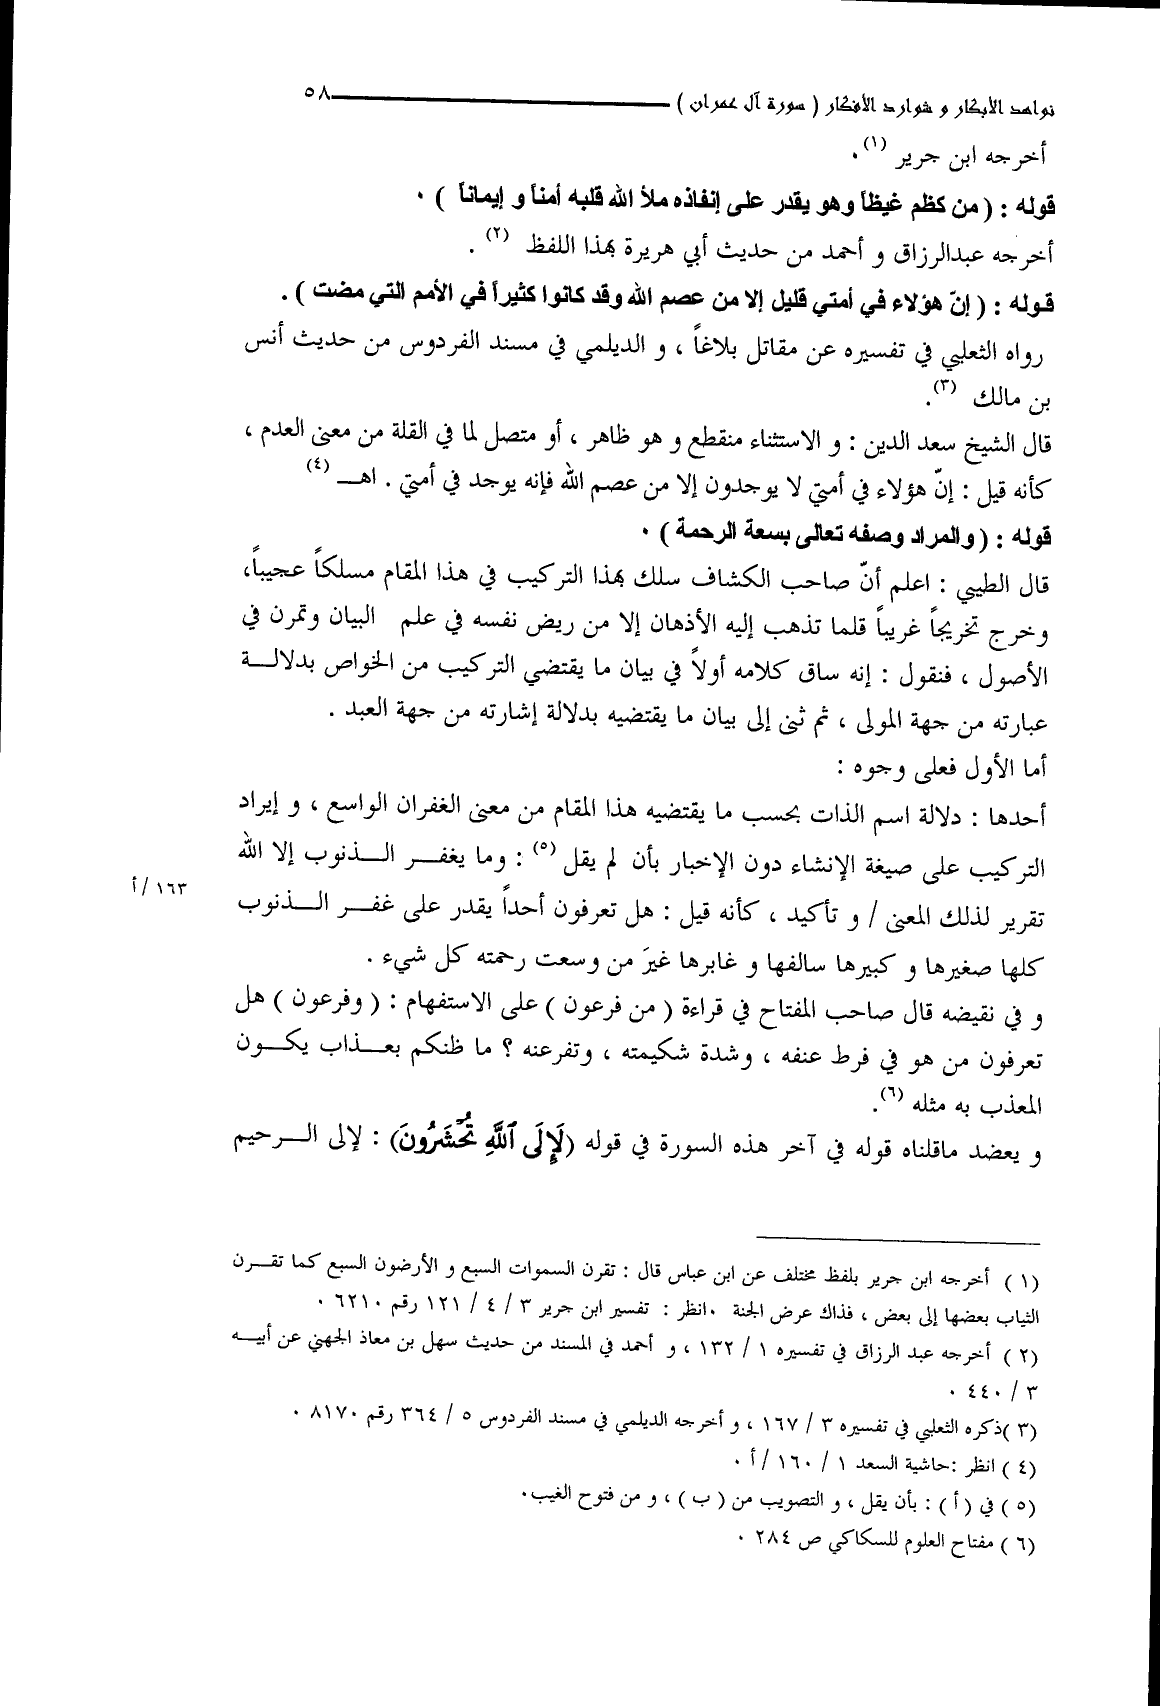 نواهد الأبكار و شوارد الأفكار ( سورة آل عمران ) ٥٨
أخرجه ابن جرير (١).
قوله : ( من كظم غيظاً وهو يقدر على إنفاذه ملأ الله قلبه أمناً و إيماناً ) .
أخرجه عبدالرزاق و أحمد من حديث أبي هريرة بهذا اللفظ (٢) .
قوله : ( إنّ هؤلاء في أمتي قليل إلا من عصم الله وقد كانوا كثيراً في الأمم التي مضت ) .
رواه الثعلبي في تفسيره عن مقاتل بلاغاً ، و الديلمي في مسند الفردوس من حديث أنس
بن مالك (٣).
قال الشيخ سعد الدين : و الاستثناء منقطع و هو ظاهر ، أو متصل لما في القلة من معنى العدم ،
كأنه قيل : إنّ هؤلاء في أمتي لا يوجدون إلا من عصم الله فإنه يوجد في أمتي . اهـ (٤)
قوله : ( والمراد وصفه تعالى بسعة الرحمة ) .
قال الطيبي : اعلم أنّ صاحب الكشاف سلك بهذا التركيب في هذا المقام مسلكاً عجيباً،
وخرج تخريجاً غريباً قلما تذهب إليه الأذهان إلا من ريض نفسه في علم البيان وتمرن في
الأصول ، فنقول : إنه ساق كلامه أولاً في بيان ما يقتضي التركيب من الخواص بدلالة
عبارته من جهة المولى ، ثم ثنى إلى بيان ما يقتضيه بدلالة إشارته من جهة العبد .
أما الأول فعلى وجوه :
أحدها : دلالة اسم الذات بحسب ما يقتضيه هذا المقام من معنى الغفران الواسع ، و إيراد
التركيب على صيغة الإنشاء دون الإخبار بأن لم يقل (٥) : وما يغفر الذنوب إلا الله
تقرير لذلك المعنى / و تأكيد ، كأنه قيل : هل تعرفون أحداً يقدر على غفر الذنوب
١٦٣/أ
كلها صغيرها و كبيرها سالفها و غابرها غيرَ من وسعت رحمته كل شيء .
و في نقيضه قال صاحب المفتاح في قراءة ( من فرعون ) على الاستفهام : ( وفرعون ) هل
تعرفون من هو في فرط عنفه ، وشدة شكيمته ، وتفرعنه ؟ ما ظنكم بعذاب يكون
المعذب به مثله (٦).
و يعضد ماقلناه قوله في آخر هذه السورة في قوله (لَإِلَى ٱللَّهِ تُحْشَرُونَ) : لإلى الرحيم
(١) أخرجه ابن جرير بلفظ مختلف عن ابن عباس قال : تقرن السموات السبع و الأرضون السبع كما تقرن
الثياب بعضها إلى بعض ، فذاك عرض الجنة . انظر : تفسير ابن جرير ٣ / ٤ / ١٢١ رقم ٦٢١٠ .
(٢) أخرجه عبد الرزاق في تفسيره ١ / ١٣٢ ، و أحمد في المسند من حديث سهل بن معاذ الجهني عن أبيه
٣ / ٤٤٠ .
(٣) ذكره الثعلبي في تفسيره ٣ / ١٦٧ ، و أخرجه الديلمي في مسند الفردوس ٥ / ٣٦٤ رقم ٨١٧٠ .
(٤) انظر :حاشية السعد ١ / ١٦٠ /أ .
(٥) في (أ) : بأن يقل ، و التصويب من (ب) ، و من فتوح الغيب.
(٦) مفتاح العلوم للسكاكي ص ٢٨٤ .